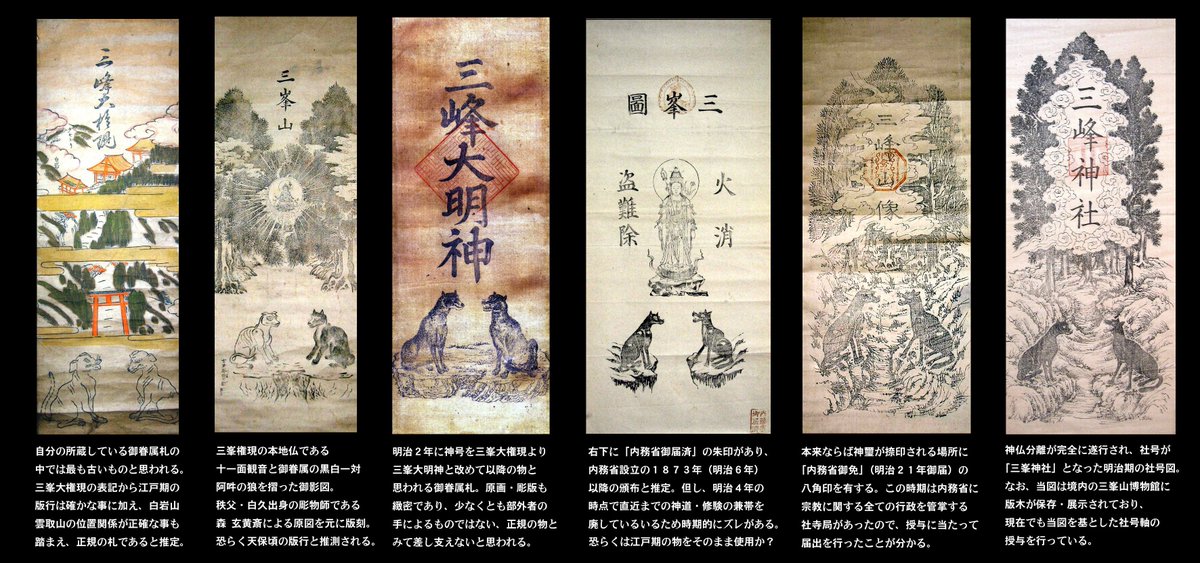 三峰大権現
自分の所蔵している御眷属札の
中では最も古いものと思われる。
三峯大権現の表記から江戸期の
版行は確かな事に加え、白岩山
雲取山の位置関係が正確な事も
踏まえ、正規の札であると推定。
三峯山
三峯権現の本地仏である
十一面観音と御眷属の黒白一対
阿吽の狼を摺った御影図。
秩父・白久出身の彫物師である
森 玄黄斎による原図を元に版刻。
恐らく天保頃の版行と推測される。
三峰大明神
明治2年に神号を三峯大権現より
三峯大明神と改めて以降の物と
思われる御眷属札。原画・彫版も
緻密であり、少なくとも部外者の
手によるものではない、正規の物と
みて差し支えないと思われる。
三峯圖
火消
盗難除
右下に「内務省御届済」の朱印があり、
内務省設立の1873年(明治6年)
以降の頒布と推定。但し、明治4年の
時点で直近までの神道・修験の兼帯を
廃しているいるため時期的にズレがある。
恐らくは江戸期の物をそのまま使用か?
三峰山像
本来ならば神璽が捺印される場所に
「内務省御免」(明治21年御届)の
八角印を有する。この時期は内務省に
宗教に関する全ての行政を管掌する
社寺局があったので、授与に当たって
届出を行ったことが分かる。
三峰神社
神仏分離が完全に遂行され、社号が
「三峯神社」となった明治期の社号図。
なお、当図は境内の三峯山博物館に
版木が保存・展示されており、
現在でも当図を基とした社号軸の
授与を行っている。